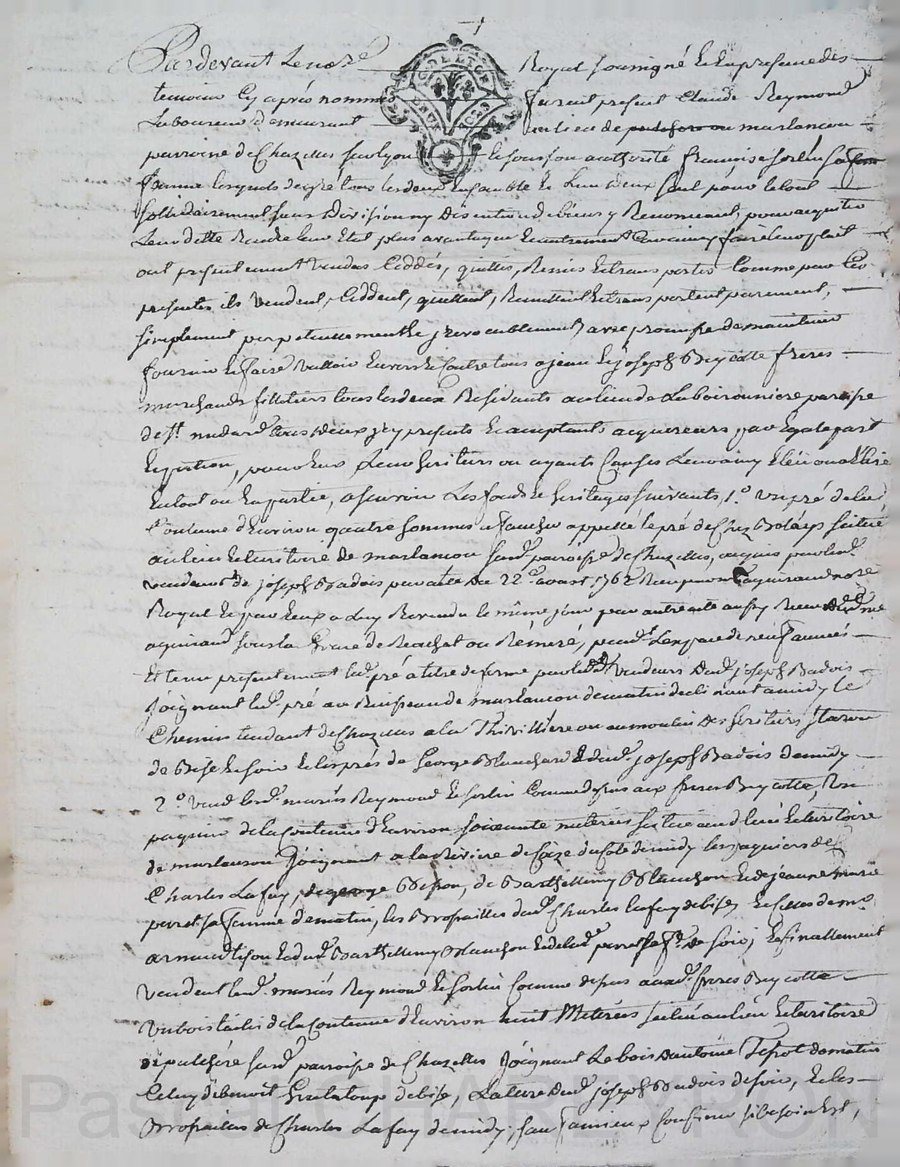 Pardevant Le no.re Royal soussigné et en presence des
temoins Cy après nommé furent present Claude Reymond
Laboureur demeurant au lieu de marlancon
parroisse de Chazelles sur Lyon et sous son authorité françoise Sorlin sa femme
femme lesquels de gré tous les deux Ensemble et L'un d'eux seul pour le tout
sollidairement sans Division ny discution de biens y Renonceant, pour acquitter
Leur dette Rendre leur Etat plus avantageux Et autrement Comme faire leur plait
ont presentement vendus Ceddés, quittés, Remis Et transportés Comme par Ces
presentes ils Vendent, Ceddent, quittent, Remettent Et transportent purement,
simplement perpetuellement et jrrevocablement avec promesse de maintenir
fournir et faire Valloir Envers et Contre tous a jean et joseph Bruyotte freres
marchands tous les deux Residants au lieu de Laboironniere paroisse
de St. medard tous deux jcy presents Et acceptants acquereurs par Egale part
Et portion, pour Eux Leurs heritiers ou ayants Causes Leurs amy Elü ou a Elire
En tout ou En partie, a sçavoir Les fonds et heritages suivants, 1.o un pré de la
Contenue d'Environ quatre hommes a faucher appellé le pré de Chez situé
au lieu Et territoire de marlancon sud. paroisse de Chazelles, acquis par les d.
vendeurs de joseph Badois par acte du 22.e aoust 1762 Reçu par no.re
Royal Et par Eux a Luy Revendu le même jour par autre acte aussy Reçu dud. me
sous la Grace de Rachat ou Réméré, pend.t L'espace de neuf années
Et tenu presentement led. pré a titre de ferme par lesd. Vendeurs dud. joseph Badois
Joignant led. pré au Ruisseau de marlancon de matin declinant a midy le
Chemin tendant de Chazelles a la Thivilliere ou au moulin des heritiers
de Bise Et soir Et les prés de George Blanchard Et dud. joseph Badois de midy
2.o vend. lesd. mariés Reymond et Sorlin Comme dessus aux freres Bruyotte, Un
paquier de la Contenue d'Environ soixante meterées situé aud. lieu Et territoire
de marlancon Joignant a la Riviere de Coize du Coté de midy les paquiers de
Charles Lafay, de george, de Barthellemy Blanchon Et de jeanne marie
sa femme de matin, les Brosailles dud. Charles Lafay de bise, Et Celles de me.
Et dud. Barthellemy Blanchon Et de lad. sa fe. de soir; Et finallement
Vendent lesd. mariés Reymond Et Sorlin Comme dessus auxd. freres Bruyotte
Un bois taillis de la Contenue d'Environ huit Metérées situé au lieu Et territoire
sud. parroisse de Chazelles Joignant Le bois d'antoine de matin
Celuy de benoit de bise, La terre dud. joseph Badois de soir, Et les
Brosailles de Charles Lafay de midy; sauf amieux Confiner si besoin Est,
Pascal CHARLEYRON